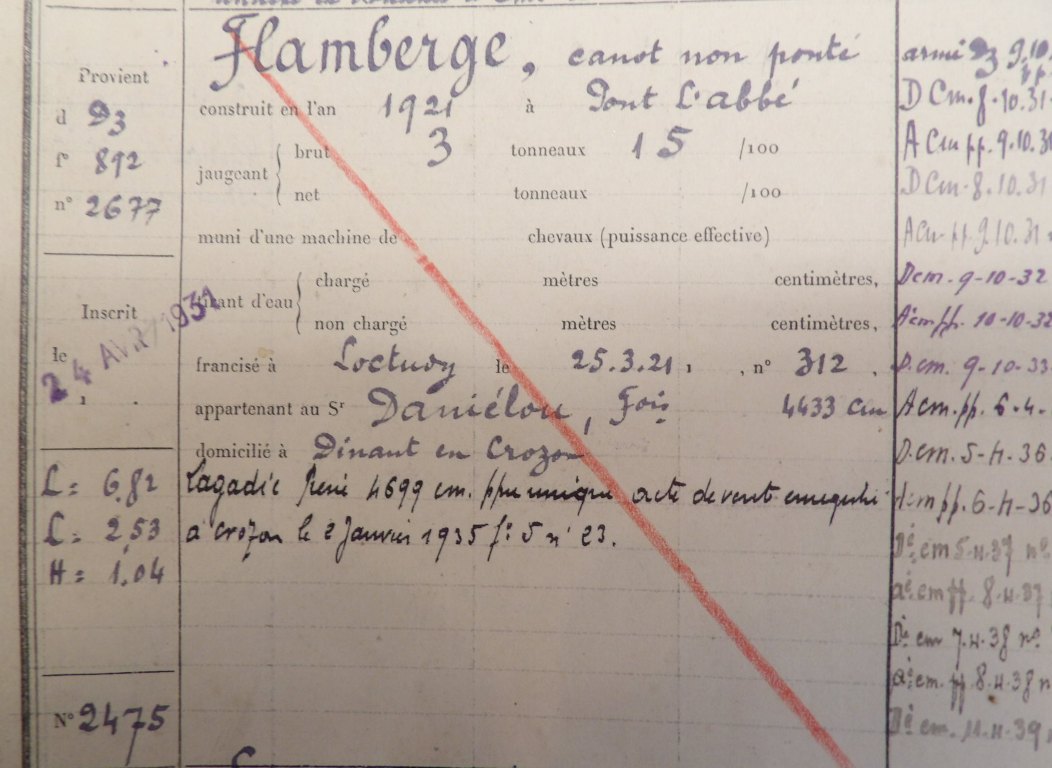 Provient
d D3
fº 892
nº 2677
Inscrit
le
24 AVR 1931
L = 6,82
L = 2,53
H = 1,04
Nº 2475
Flamberge, canot non ponté
construit en l'an 1921 à Pont L'abbé
jaugeant { brut 3 tonneaux 15 /100
net tonneaux /100
muni d'une machine de chevaux (puissance effective)
tirant d'eau { chargé mètres centimètres,
non chargé mètres centimètres,
francisé à Loctudy le 25.3.21, nº 312,
appartenant au Sr Daniélou, Fois 4433 cm
domicilié à Dinant en Crozon
Lagadic René 4699 cm. ppre unique acte de vente
à Crozon le 2 Janvier 1935 fº 5 nº 23.
armé D3 9.10.
D Cm. 8.10.31
A Cm pp. 9.10.3
D Cm. 8.10.31
A Cm pp. 9.10.31
D cm. 9-10-32
A cm pp. 10-10-32
D. cm. 9-10-33
A cm. pp. 6-4-
D. cm. 5-4-36
A cm pp. 6-4-36
Dé cm 5.4.37 nº
aé cm pp. 8.4.37
Dé cm 7.4.38 nº
aé cm. pp. 8.4.38 n
Dé cm. 11.4.39